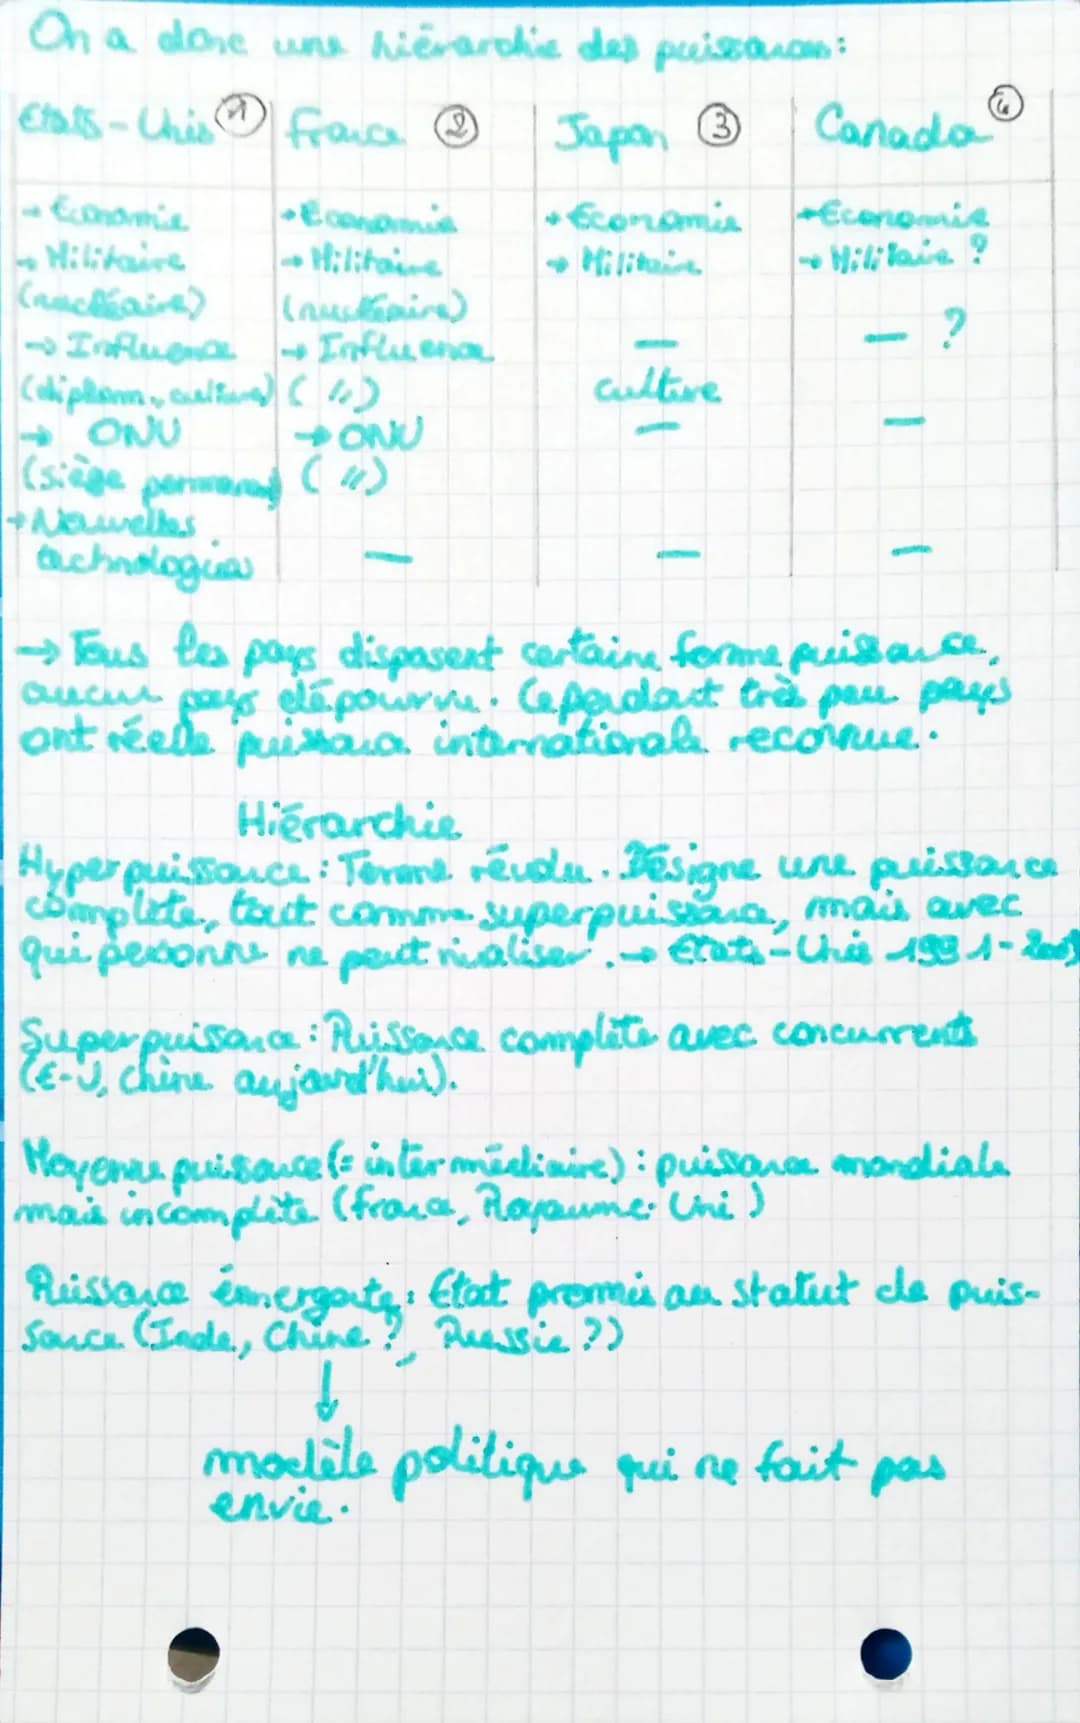 On a donc une hiérarchie des puissances :
Etats-Unis ① France ② Japon ③ Canada ④
→ Economie → Economie → Economie → Economie
→ Militaire → Militaire → Militaire → Militaire ?
(nucléaire) (nucléaire)
→ Influence → Influence — — ?
(diplom., culture) ( // ) culture
→ ONU → ONU — —
(siège permanent) ( // )
→ Nouvelles
technologies — — —
→ Tous les pays disposent certaine forme puissance,
aucun pays dépourvu. Cependant très peu pays
ont réelle puissance internationale reconnue.
Hiérarchie
Hyperpuissance : Terme révolu. Désigne une puissance
complète, tout comme superpuissance, mais avec
qui personne ne peut rivaliser. → Etats-Unis 1991-2003
Superpuissance : Puissance complète avec concurrents
(E-U, Chine aujourd'hui).
Moyenne puissance (= intermédiaire) : puissance mondiale
mais incomplète (France, Royaume-Uni)
Puissance émergente : Etat promis au statut de puis-
sance (Inde, Chine ?, Russie ?)
↓
modèle politique qui ne fait pas
envie.